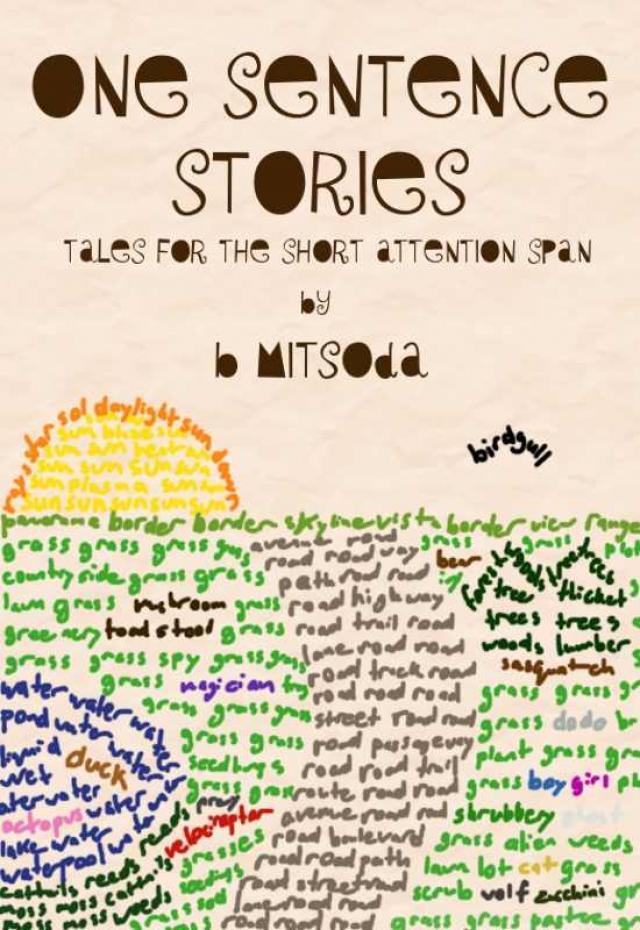 ONE SENTENCE
STORIES
TALES FOR THE SHORT ATTENTION SPAN
by
b MITSODA
star sol daylight sun dawn
sun sun sun
sun plasma sun
sun sun sun sun sun
birdgull
border border skyline vista border view range
grass grass grass
avenue road
grass
grass
road road way
bear
countryside grass grass
path road road
forest
trees
tree
thicket
lawn grass mushroom grass
road highway
trees trees
greenery toadstool grass
road trail road
woods lumber
grass grass spy grass
lane road road
sasquatch
water water water
grass magician
road truck road
grass grass
pond water water
grass grass
road road road
street road road
grass dodo
liquid water
grass grass
road passageway
plant grass
wet duck
seedlings
road road trail
grass boy girl
water water
grass
route road road
prey
octopus water
velociraptor
avenue road
shrubbery ghost
lake water
reads
grasses
road boulevard
grass alien weeds
waterpool
reads
road road path
lawn lot cat grass
cattails reads
seedlings
road street road
scrub wolf zucchini
moss moss cattails
moss moss weeds
grass sod
road road
grass grass pasture